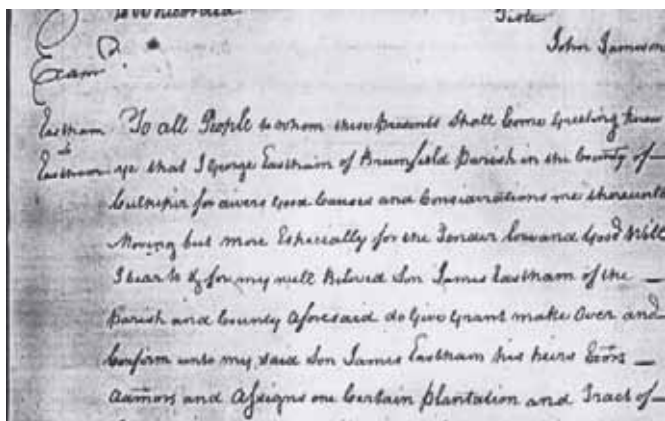 is Recorded
Teste
John Jameson
Exam.
Eastham To all People to whom these Presents Shall Come Greeting know
to
Eastham ye that I George Eastham of Brumfield Parish in the County of
Culpeper for divers Good Causes and Considerations me thereunto
Moving but more Especially for the Tender love and Good Will
I bear to & for my well Beloved Son James Eastham of the
Parish and County aforesaid do Give Grant make Over and
Confirm unto my said Son James Eastham his heirs Exors
Admors and Assigns one Certain Plantation and Tract of